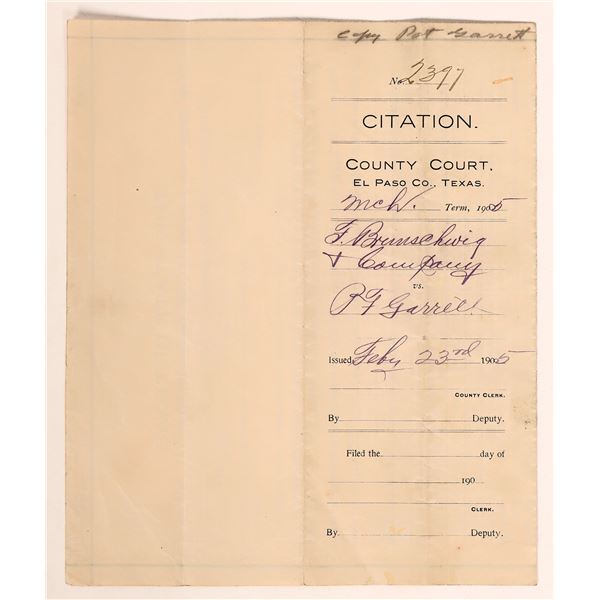 Copy Pat Garrett
No. 2397
CITATION.
COUNTY COURT,
EL PASO CO., TEXAS.
Mch. Term, 1905
F. Brunschwig
& Company
vs.
P F Garrett
Issued Feby 23rd 1905
COUNTY CLERK.
By Deputy.
Filed the day of
190
CLERK.
By Deputy.